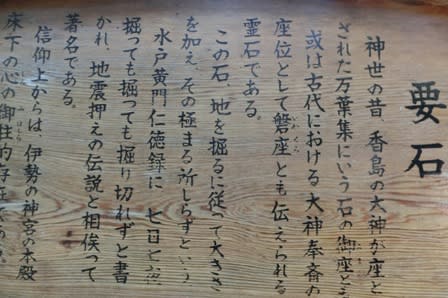 要石
神世の昔、香島の大神が座と
された万葉集にいう石の御座とも
或は古代における大神奉斎の
座位として磐座とも伝えられる
霊石である。
この石、地を掘るに従って大きさ
を加え、その極まる所しらずという
水戸黄門仁徳録に、七日七夜
掘っても掘っても掘り切れずと書
かれ、地震押えの伝説と相俟って
著名である。
信仰上からは、伊勢の神宮の本殿
床下の心の御柱的存在である